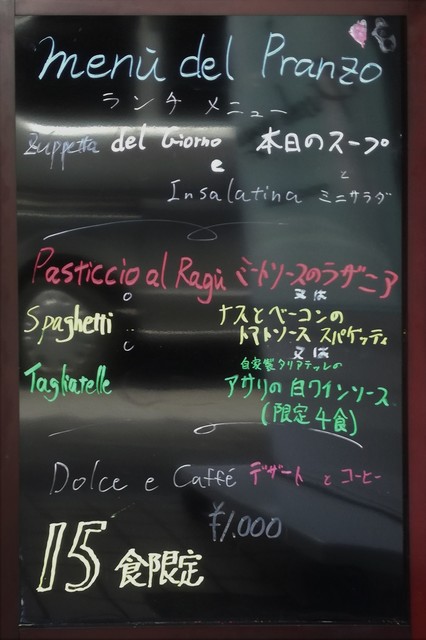 menù del Pranzo
ランチ メニュー
Zuppetta del Giorno 本日のスープ
e と
Insalatina ミニサラダ
Pasticcio al Ragù ミートソースのラザニア
o 又は
Spaghetti ナスとベーコンの
トマトソース スパゲッティ
o 又は
自家製タリアテッレの
Tagliatelle アサリの白ワインソース
(限定4食)
Dolce e Caffé デザート と コーヒー
¥1,000
15 食限定